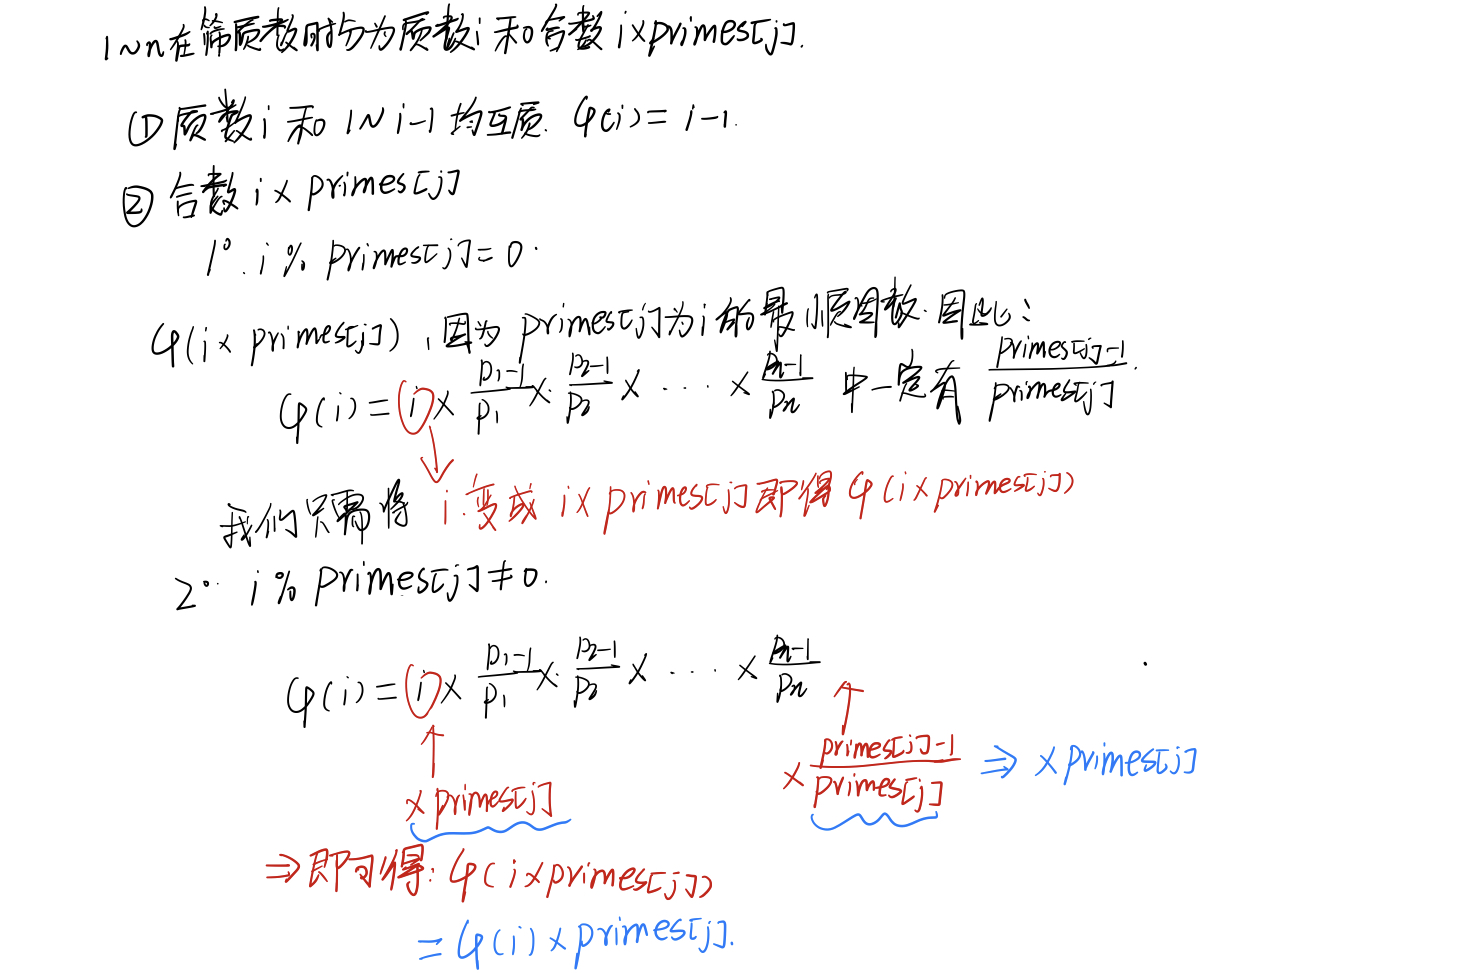 1~n在筛质数时分为质数i和合数i×primes[j].
① 质数i和1~i-1均互质. φ(i)=i-1.
② 合数i×primes[j]
1°. i%primes[j]=0.
φ(i×primes[j]),因为primes[j]为i的最小质因数.因此:
φ(i)=i×\frac{p1-1}{p1}×\frac{p2-1}{p2}×····×\frac{pn-1}{pn} 中一定有 \frac{primes[j]-1}{primes[j]}.
我们只需将 i变成i×primes[j]即得φ(i×primes[j])
2°. i%primes[j]≠0.
φ(i)=i×\frac{p1-1}{p1}×\frac{p2-1}{p2}×····×\frac{pn-1}{pn}
×primes[j] ×\frac{primes[j]-1}{primes[j]} ⇒ ×primes[j]
⇒即可得:φ(i×primes[j])
=φ(i)×primes[j].